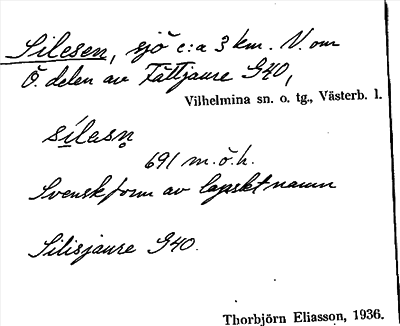 Silesen, sjö c:a 3 km. V. om
Ö. delen av Fättjaure G40,
Vilhelmina sn. o. tg., Västerb. l.
sílasn̥
691 m. ö. h.
Svensk form av lapskt namn
Silisjaure G40.
Thorbjörn Eliasson, 1936.